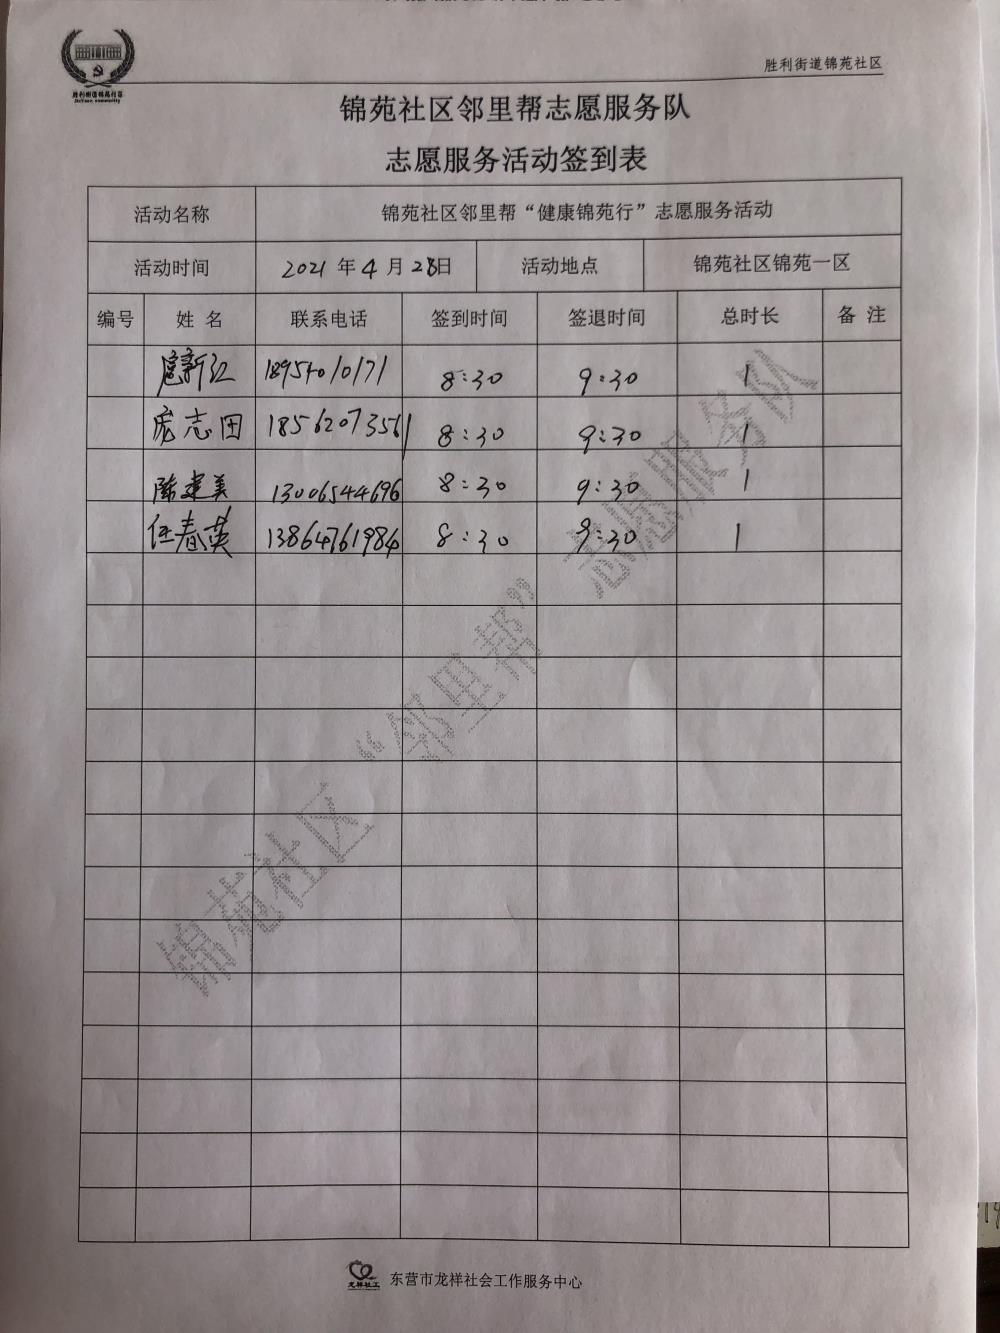 胜利街道锦苑社区
胜利街道锦苑社区
JinYuan community
锦苑社区邻里帮志愿服务队
志愿服务活动签到表
活动名称 锦苑社区邻里帮“健康锦苑行”志愿服务活动
活动时间 2021 年 4 月 28日 活动地点 锦苑社区锦苑一区
编号 姓 名 联系电话 签到时间 签退时间 总时长 备 注
扈新江 18954010171 8:30 9:30 1
庞志田 18562073561 8:30 9:30 1
陈建美 13006544696 8:30 9:30 1
任春英 13864761984 8:30 9:30 1
锦苑社区“邻里帮”志愿服务队
龙祥社工
东营市龙祥社会工作服务中心